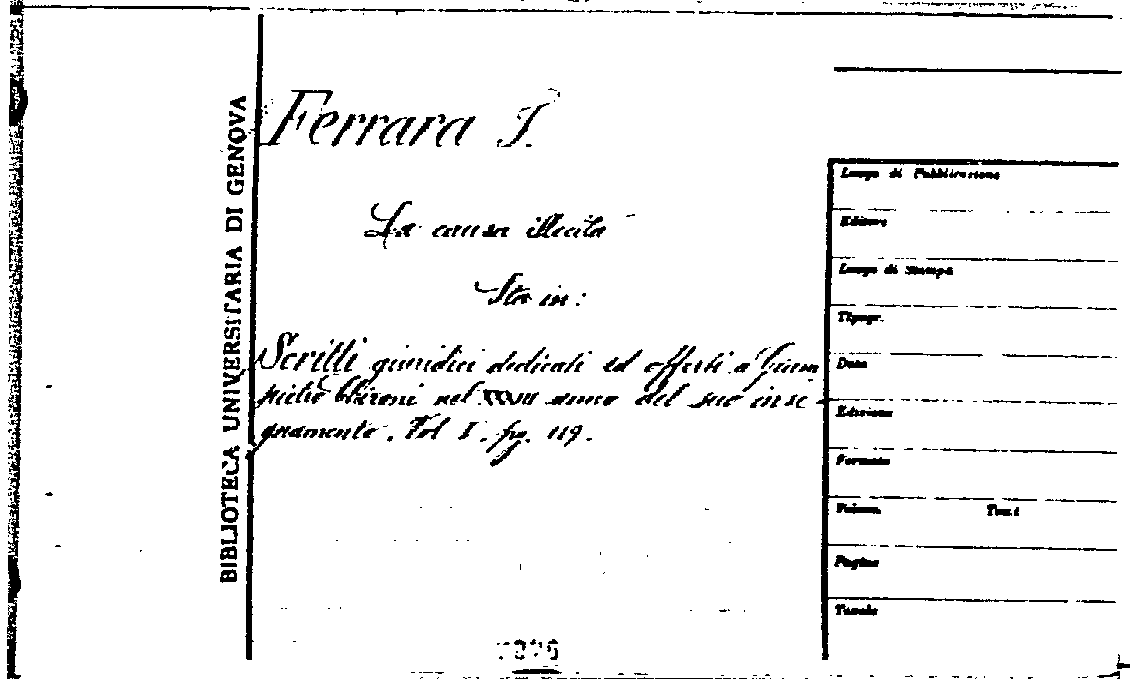 BIBLIOTECA UNIVERSITARIA DI GENOVA
Ferrara
La causa illecita
Sta in:
Scritti giuridici dedicati ed offerti a Giam
pietro Chironi nel XXXIII anno del suo inse-
gnamento. Vol I. pg. 119.
Luogo di Pubblicazione
Editore
Luogo di stampa
Tipogr.
Data
Edizione
Formato
Volum. Tom.i
Pagine
Tavole